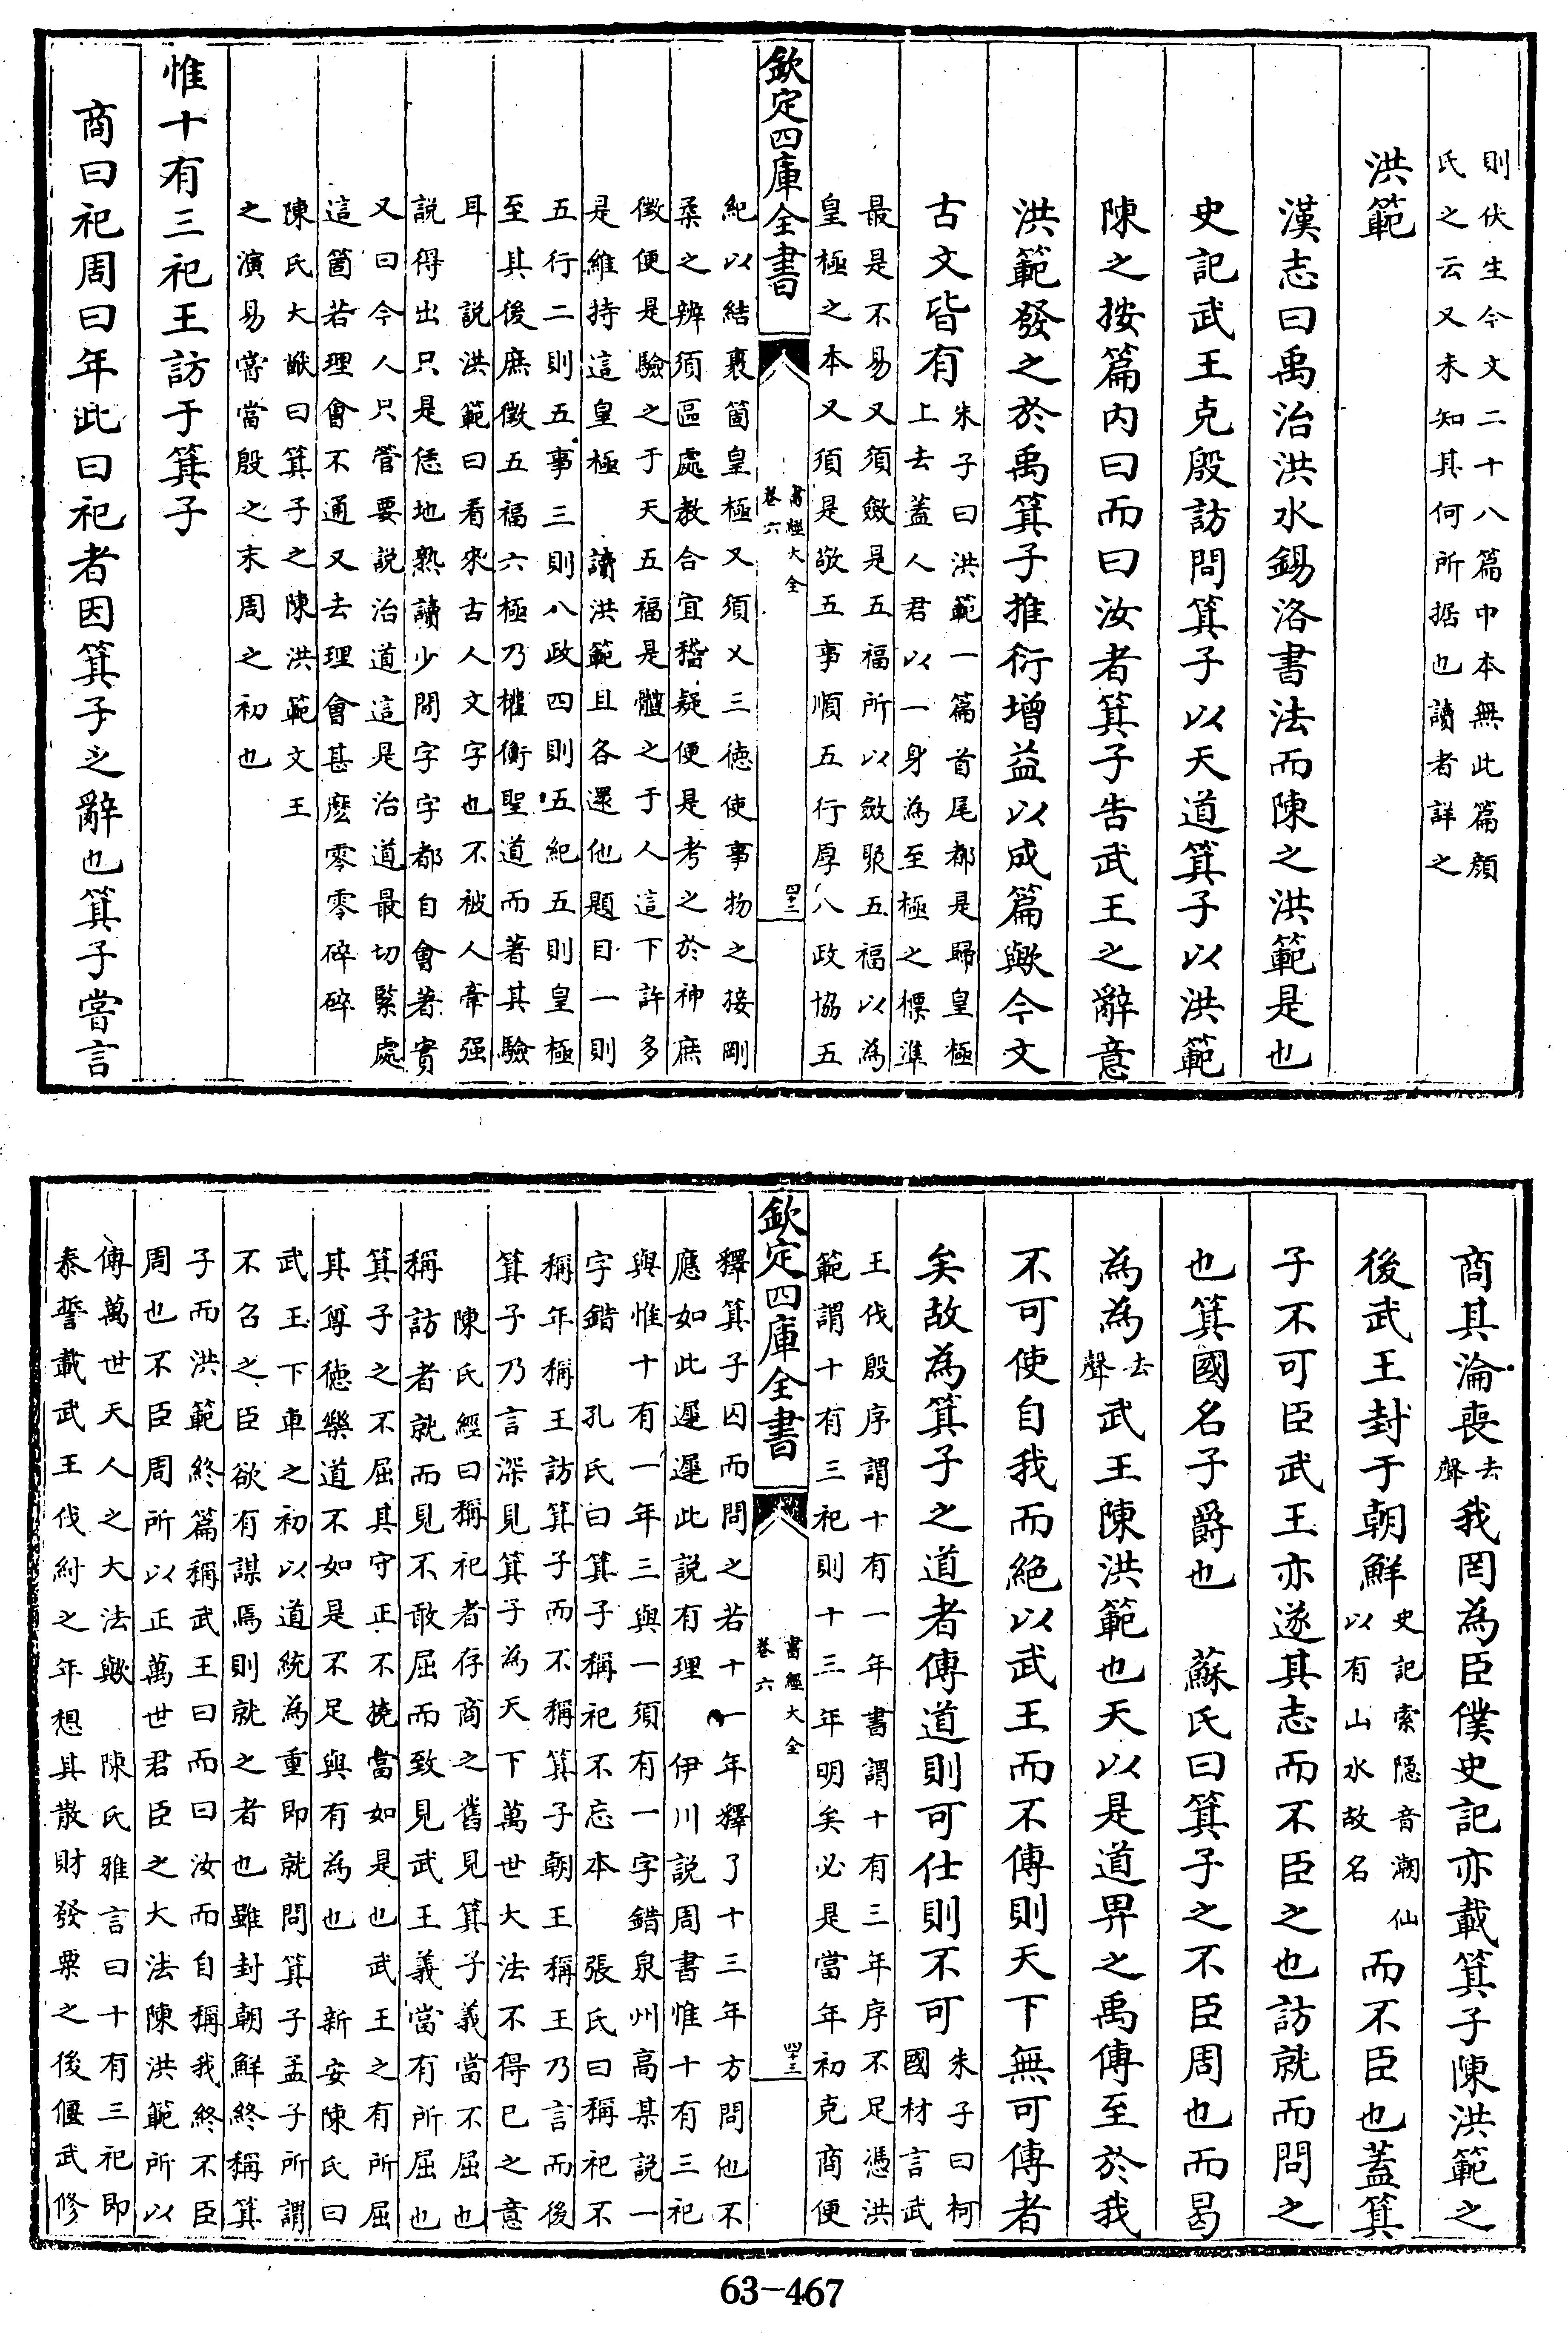 則伏生今文二十八篇中本無此篇顔
氏之云又未知其何所据也讀者詳之
洪範
漢志曰禹治洪水錫洛書法而陳之洪範是也
史記武王克殷訪問箕子以天道箕子以洪範
陳之按篇内曰而曰汝者箕子告武王之辭意
洪範發之於禹箕子推衍增益以成篇歟今文
古文皆有
朱子曰洪範一篇首尾都是歸皇極
上去葢人君以一身為至極之標準
最是不易又須斂是五福所以斂聚五福以為
皇極之本又須是敬五事順五行厚八政協五
欽定四庫全書
書經大全
卷六
四十二
紀以結裹箇皇極又須乂三徳使事物之接剛
柔之辨須區處教合宜稽疑便是考之於神庶
徴便是驗之于天五福是體之于人這下許多
是維持這皇極 讀洪範且各還他題目一則
五行二則五事三則八政四則五紀五則皇極
至其後庶徴五福六極乃權衡聖道而著其驗
耳 説洪範曰看來古人文字也不被人牽强
説得出只是恁地熟讀少間字字都自會著實
又曰今人只管要説治道這是治道最切緊處
這箇若理會不通又去理會甚麽零零碎碎
陳氏大猷曰箕子之陳洪範文王
之演易當當殷之末周之初也
惟十有三祀王訪于箕子
商曰祀周曰年此曰祀者因箕子之辭也箕子嘗言
商其淪喪
去
聲
我罔為臣僕史記亦載箕子陳洪範之
後武王封于朝鮮
史記索隠音潮仙
以有山水故名
而不臣也葢箕
子不可臣武王亦遂其志而不臣之也訪就而問之
也箕國名子爵也 蘇氏曰箕子之不臣周也而曷
為為
去
聲
武王陳洪範也天以是道畀之禹傳至於我
不可使自我而絶以武王而不傳則天下無可傳者
矣故為箕子之道者傳道則可仕則不可
朱子曰柯
國材言武
王伐殷序謂十有一年書謂十有三年序不足憑洪
範謂十有三祀則十三年明矣必是當年初克商便
欽定四庫全書
書經大全
卷六
四十三
釋箕子囚而問之若十一年釋了十三年方問他不
應如此遲遲此説有理 伊川説周書惟十有三祀
與惟十有一年三與一須有一字錯泉州高某説一
字錯 孔氏曰箕子稱祀不忘本 張氏曰稱祀不
稱年稱王訪箕子而不稱箕子朝王稱王乃言而後
箕子乃言深見箕子為天下萬世大法不得已之意
陳氏經曰稱祀者存商之舊見箕子義當不屈也
稱訪者就而見不敢屈而致見武王義當有所屈也
箕子之不屈其守正不撓當如是也武王之有所屈
其尊徳樂道不如是不足與有為也 新安陳氏曰
武王下車之初以道統為重即就問箕子孟子所謂
不召之臣欲有謀焉則就之者也雖封朝鮮終稱箕
子而洪範終篇稱武王曰而曰汝而自稱我終不臣
周也不臣周所以正萬世君臣之大法陳洪範所以
傳萬世天人之大法歟 陳氏雅言曰十有三祀即
泰誓載武王伐紂之年想其散財發粟之後偃武修
63-467